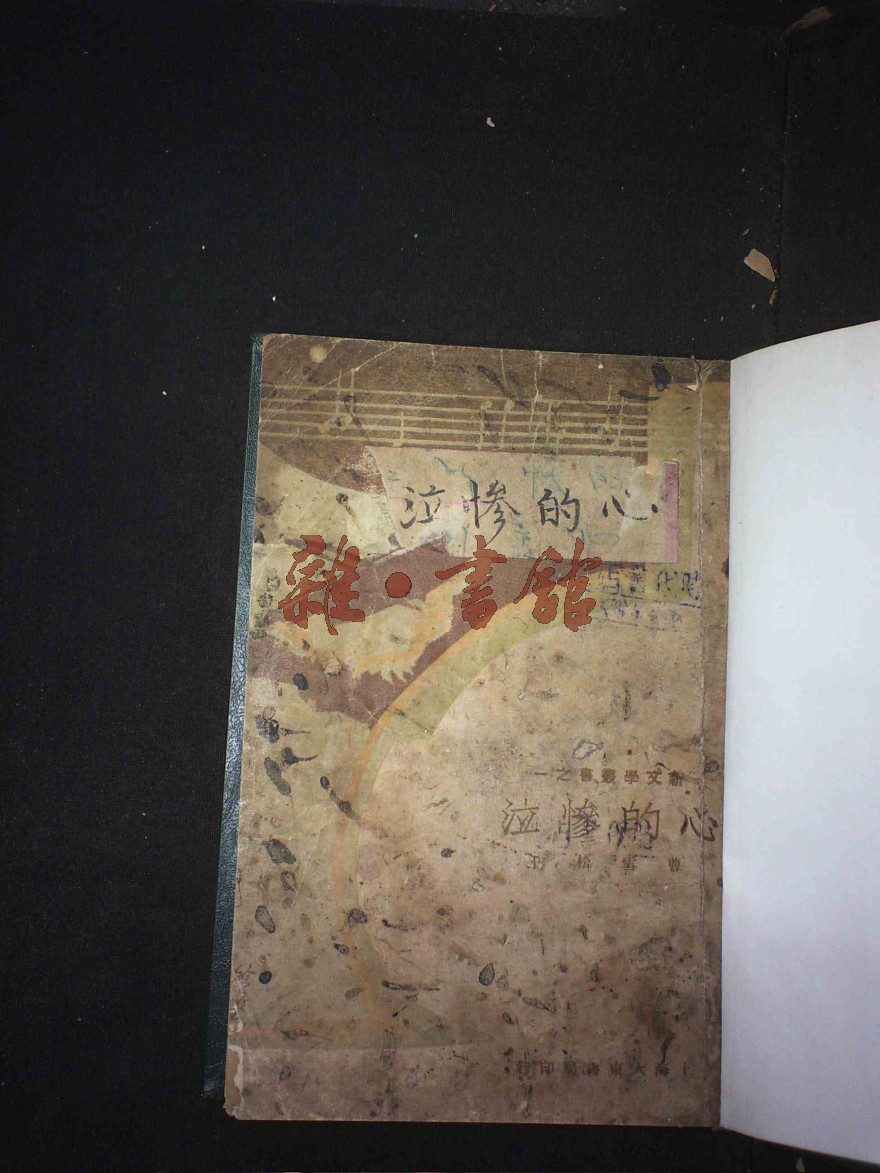 心的慘泣
雜·書館
新文學叢書之一
心的慘泣
曹雪松
上海大東書局印行